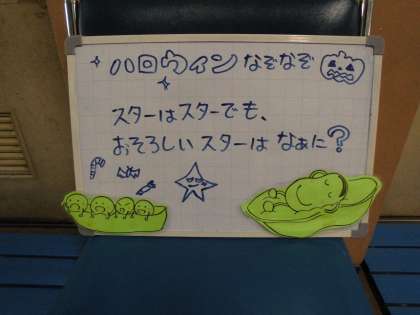 ハロウィンなぞなぞ
スターはスターでも、
おそろしいスターは なぁに?